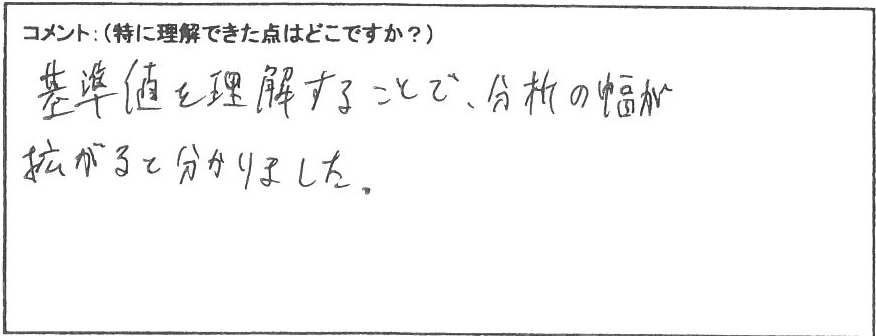 コメント：（特に理解できた点はどこですか？）
基準値を理解することで、分析の幅が
拡がると分かりました。